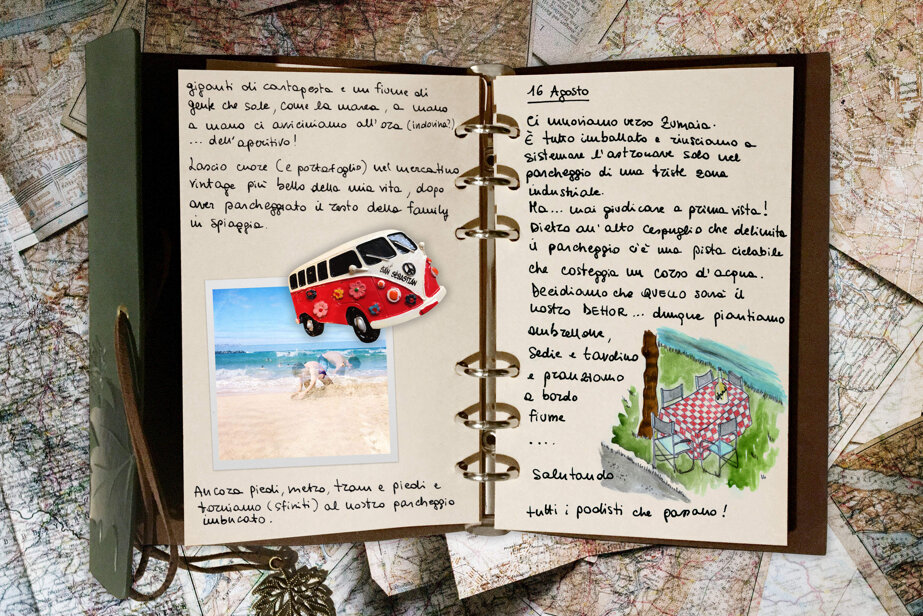 giganti di cartapesta e un fiume di
gente che sale, come la marea, a mano
a mano ci avviciniamo all'ora (indovina?)
... dell'aperitivo!
Lascio cuore (e portafoglio) nel mercatino
vintage più bello della mia vita, dopo
aver parcheggiato il resto della family
in spiaggia.
SAN SEBASTIAN
Ancora piedi, metro, tram e piedi e
torniamo (sfiniti) al nostro parcheggio
imbucato.
16 Agosto
Ci muoviamo verso Zumaia.
È tutto imballato e riusciamo a
sistemare l'astronave solo nel
parcheggio di una triste zona
industriale.
Ma... mai giudicare a prima vista!
Dietro un'alto cespuglio che delimita
il parcheggio c'è una pista ciclabile
che costeggia un corso d'acqua.
Decidiamo che QUELLO sarà il
nostro DEHOR... dunque piantiamo
ombrellone,
sedie e tavolino
e pranziamo
a bordo
fiume
....
Salutando
tutti i podisti che passano!